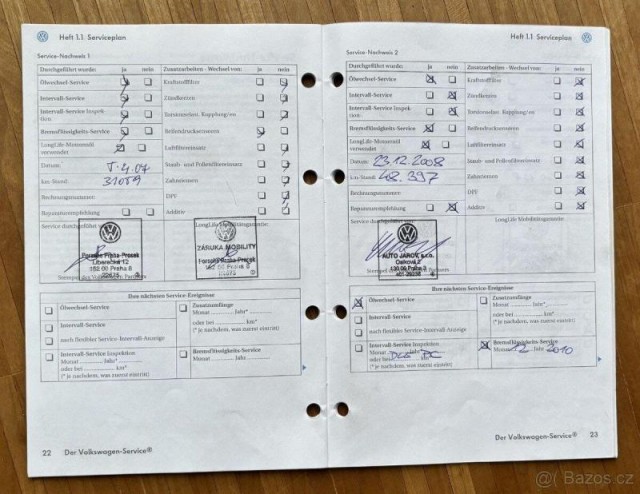 Heft 1.1 Serviceplan
Service-Nachweis 1
Durchgeführt wurde: ja nein
Ölwechsel-Service
Intervall-Service
Intervall-Service Inspek-
tion:
Bremsflüssigkeits-Service
LongLife-Motorenöl
verwendet
Datum:
km-Stand: 31059
Rechnungsnummer:
Reparaturempfehlung
Zusatzarbeiten - Wechsel von: ja nein
Kraftstofffilter
Zündkerzen
Reifendruckzustand
Luftfiltereinsatz
Staub- und Pollenfiltereinsatz
Zahnriemen
DPF
Additiv
Service durchgeführt
LongLife Mobilitätsgarantie:
Porsche Praha-Prosek
Liberecká 12
182 00 Praha 8
ZÁRUKA MOBILITY
Porsche Praha-Prosek
182 00 Praha 8
Ihre nächsten Service-Ereignisse
Ölwechsel-Service
Intervall-Service
nach flexibler Service-Intervall-Anzeige
Intervall-Service Inspektion
Monat Jahr*
oder bei km*
(* je nachdem, was zuerst eintritt)
Zusatzumfänge
Monat Jahr*
oder bei km*
(* je nachdem, was zuerst eintritt)
Bremsflüssigkeits-Service
Monat Jahr
22 Der Volkswagen-Service®
Heft 1.1 Serviceplan
Service-Nachweis 2
Durchgeführt wurde: ja nein
Ölwechsel-Service
Intervall-Service
Intervall-Service Inspek-
tion:
Bremsflüssigkeits-Service
LongLife-Motorenöl
verwendet
Datum: 23.12.2008
km-Stand: 48.397
Rechnungsnummer:
Reparaturempfehlung
Zusatzarbeiten - Wechsel von: ja nein
Kraftstofffilter
Zündkerzen
Luftfiltereinsatz
Staub- und Pollenfiltereinsatz
Zahnriemen
DPF
Additiv
Service durchgeführt
LongLife Mobilitätsgarantie:
AUTO JAROV, s.r.o.
Osiková 2
130 00 Praha 3
Ihre nächsten Service-Ereignisse
Ölwechsel-Service
Intervall-Service
nach flexibler Service-Intervall-Anzeige
Intervall-Service Inspektion
Monat Jahr*
oder bei km*
(* je nachdem, was zuerst eintritt)
Zusatzumfänge
Monat Jahr*
oder bei km*
(* je nachdem, was zuerst eintritt)
Bremsflüssigkeits-Service
Monat 12 Jahr 2010
Der Volkswagen-Service® 23
@ Bazos.cz